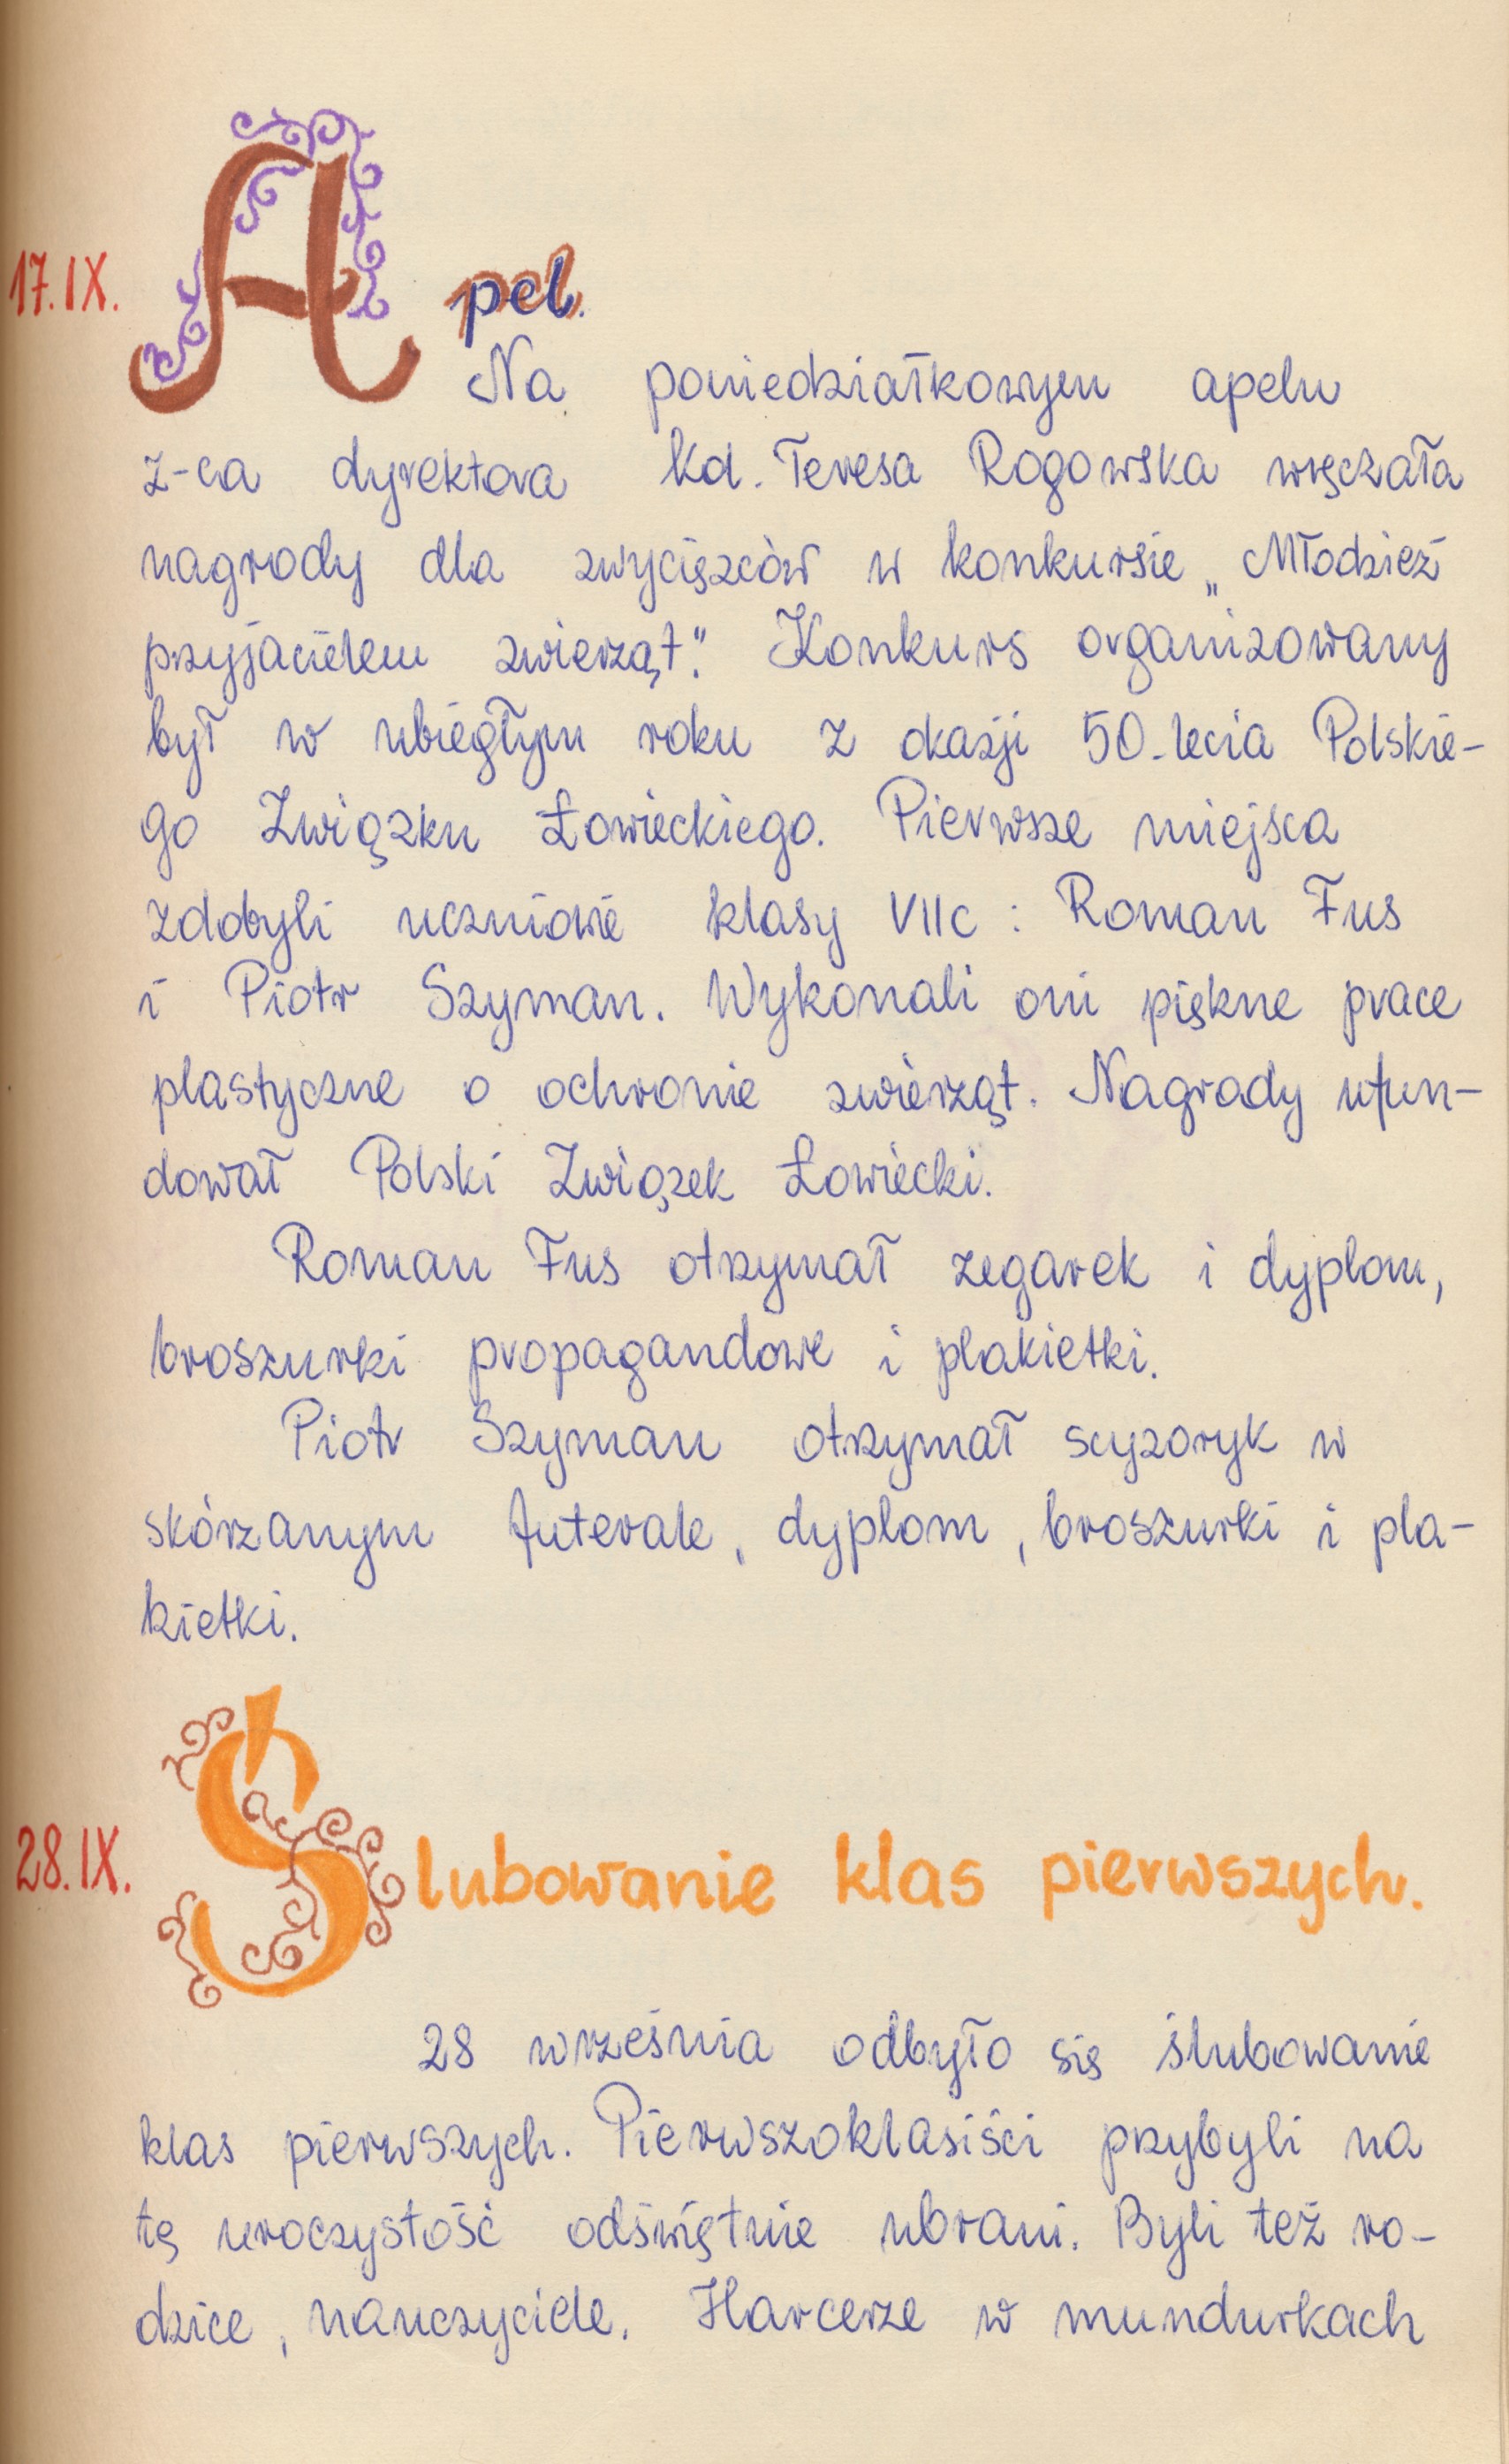 17.IX. Apel.
Na poniedziałkowym apelu
z-ca dyrektora kd. Teresa Rogowska wręczała
nagrody dla zwycięzców w konkursie „Młodzież
przyjacielem zwierząt." Konkurs organizowany
był w ubiegłym roku z okazji 50-lecia Polskie-
go Związku Łowieckiego. Pierwsze miejsca
zdobyli uczniowie klasy VIIc : Roman Fus
i Piotr Szyman. Wykonali oni piękne prace
plastyczne o ochronie zwierząt. Nagrody ufun-
dował Polski Związek Łowiecki.
Roman Fus otrzymał zegarek i dyplom,
broszurki propagandowe i plakietki.
Piotr Szyman otrzymał scyzoryk w
skórzanym futerale, dyplom, broszurki i pla-
kietki.
28.IX. Ślubowanie klas pierwszych.
28 września odbyło się ślubowanie
klas pierwszych. Pierwszoklasiści przybyli na
tę uroczystość odświętnie ubrani. Byli też ro-
dzice, nauczyciele. Harcerze w mundurkach